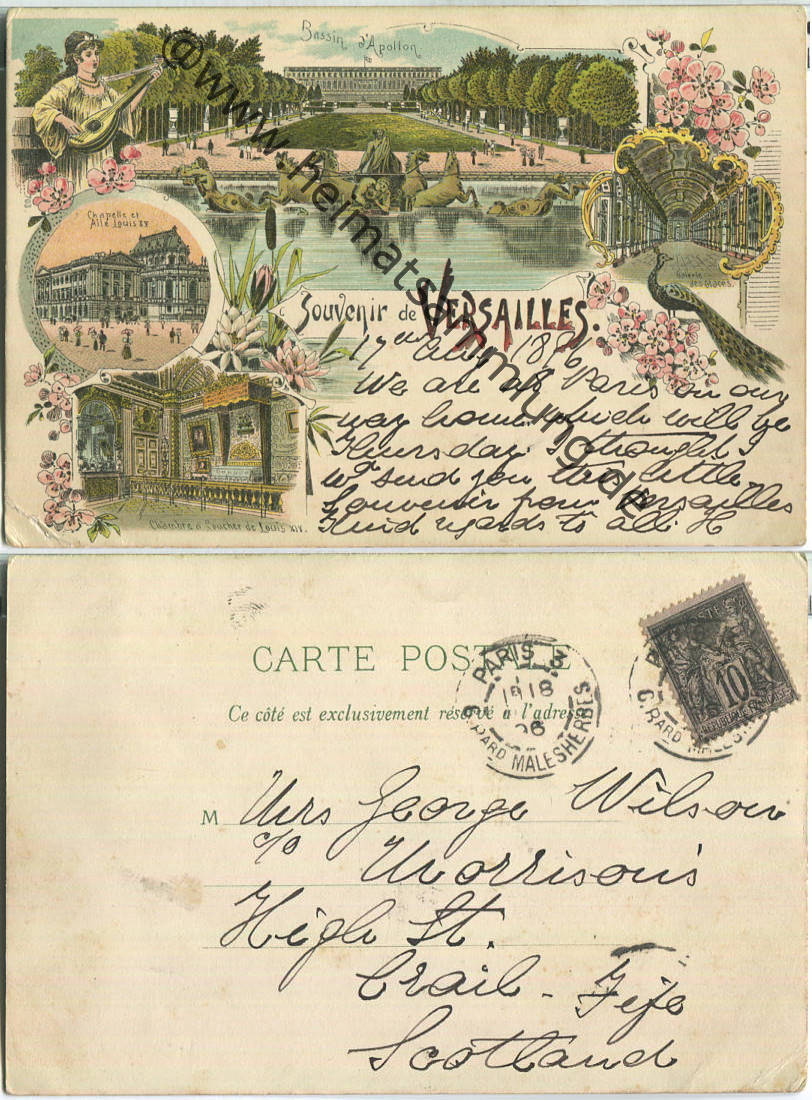 Bassin d'Apollon
@www.heimatsammlung.de
Chapelle et
Aile Louis XV
Galerie
des Glaces.
Souvenir de VERSAILLES.
17th Aug. 1896
We are at Paris on our
way home which will be
Thursday. I thought I
wd send you this little
Souvenir from Versailles
Kind regards to all. H
Chambre à Coucher de Louis XIV.
CARTE POSTALE
Ce côté est exclusivement réservé à l'adresse
PARIS 3
18
96
MALESHERBES
POSTE
10
REPUBLIQUE FRANÇAISE
PARIS
MALESHERBES
M Mrs George Wilson
c/o Morrison's
High St.
Crail - Fife
Scotland